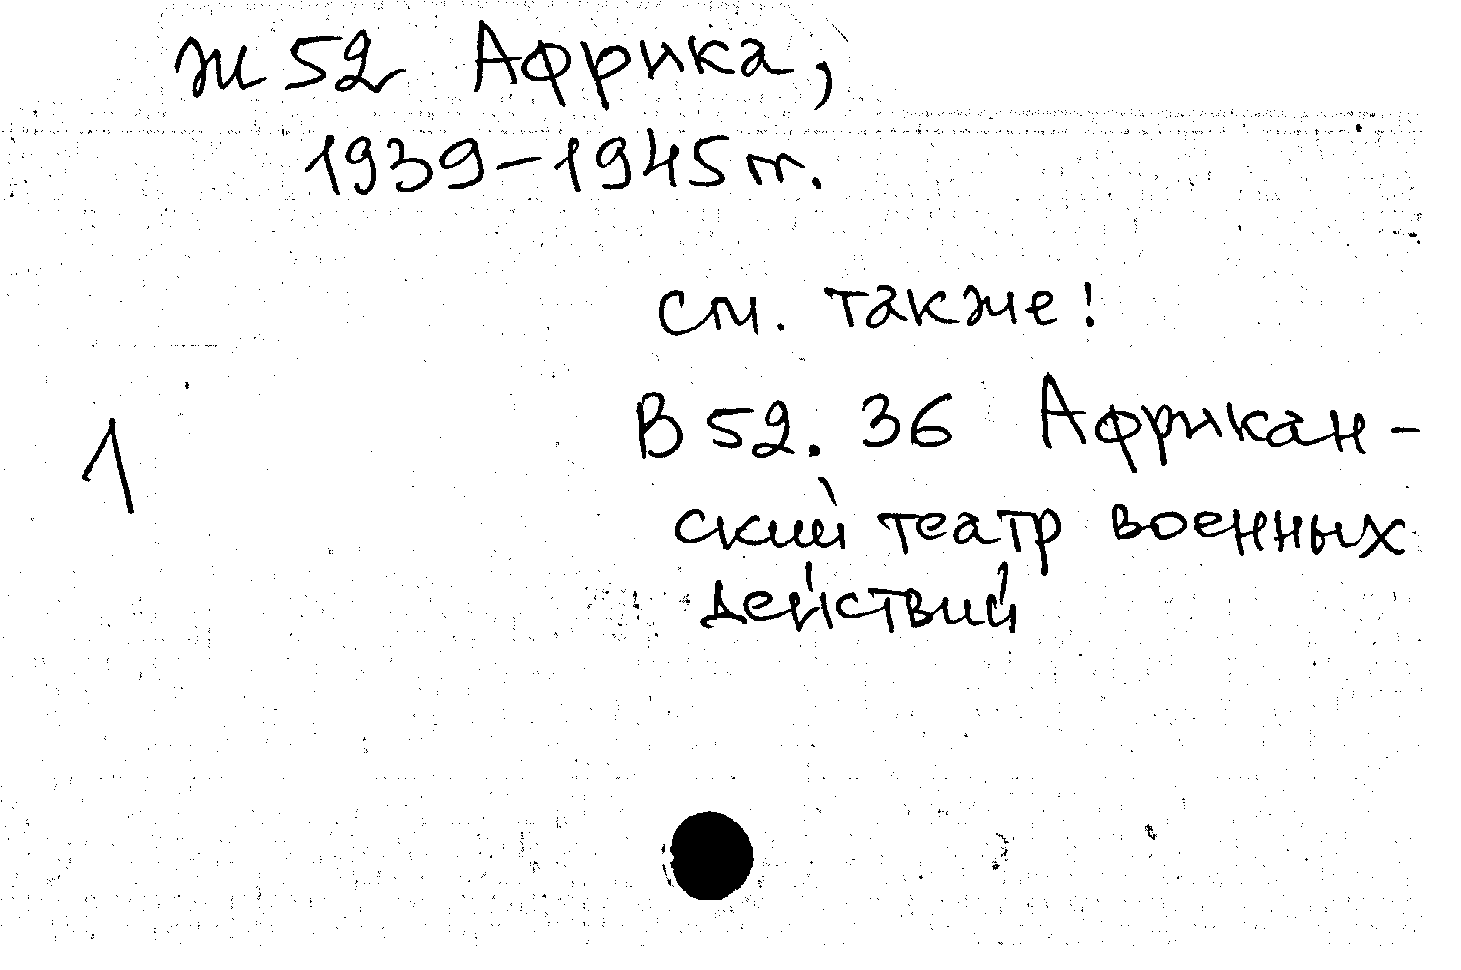 Ж 52 Африка,
1939-1945 гг.
см. также!
В 52.36 Африкан-
1
ский театр военных
действий